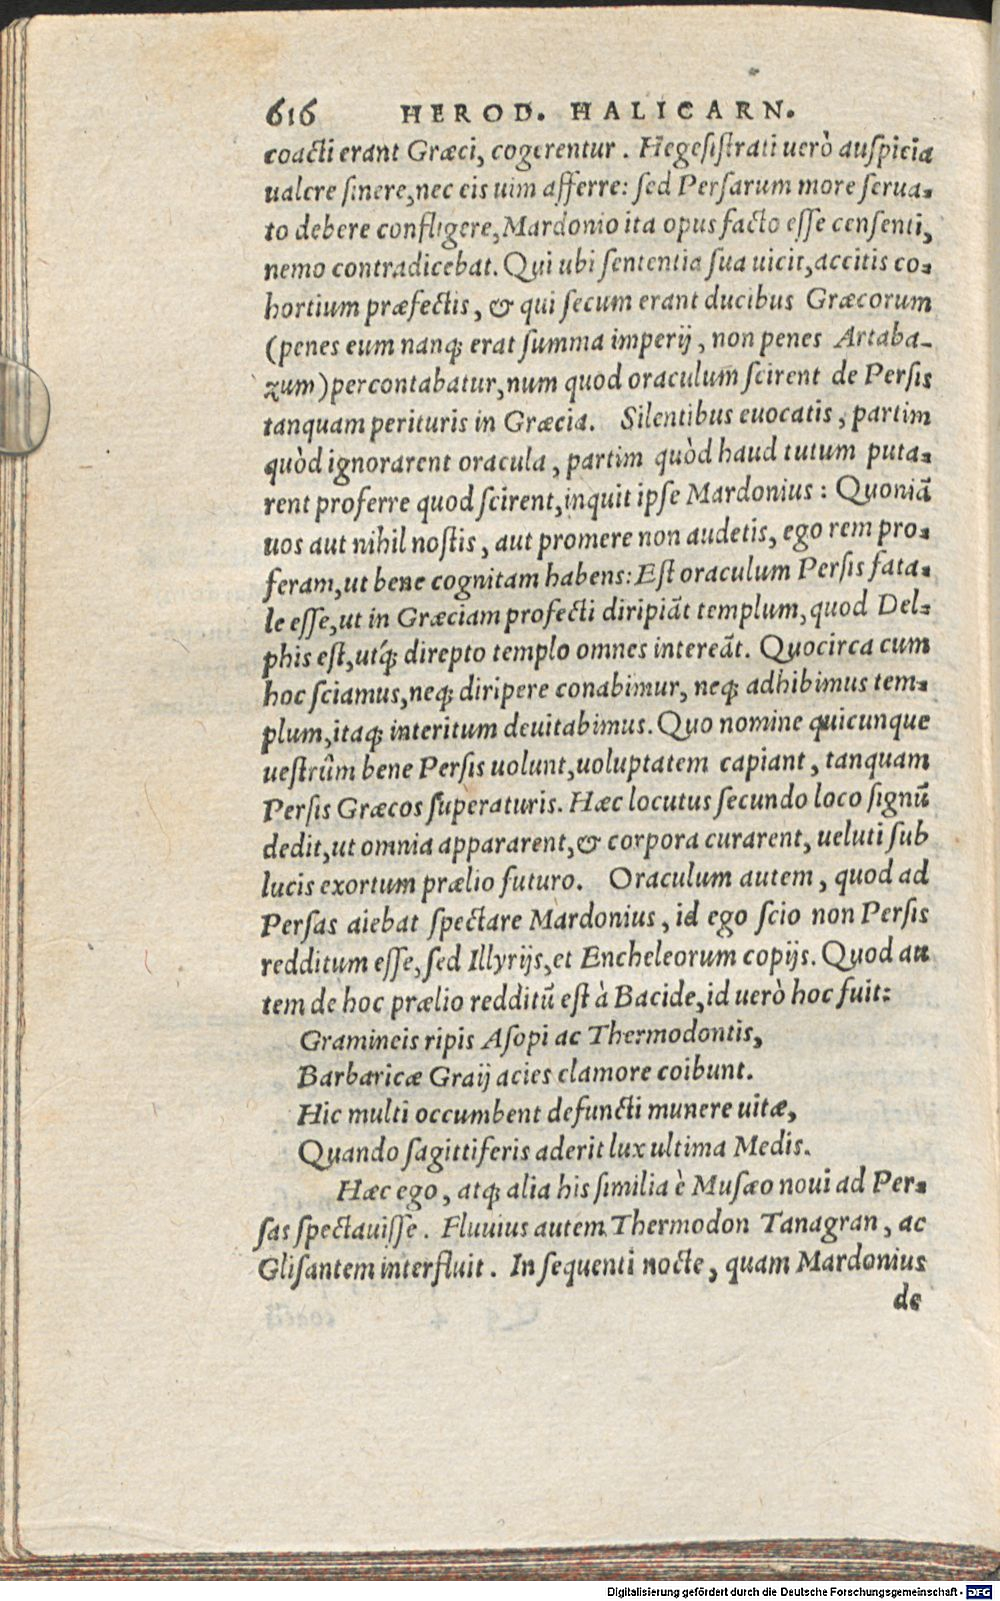 616 HEROD. HALICARN.
coacti erant Græci, cogerentur. Hegesiſtrati uerò auſpicia
ualere ſinere, nec eis uim afferre: ſed Perſarum more ſerua-
to debere confligere, Mardonio ita opus facto eſſe cenſenti,
nemo contradicebat. Qui ubi ſententia ſua uicit, accitis co-
hortium præfectis, & qui ſecum erant ducibus Græcorum
(penes eum nanq; erat ſumma imperij, non penes Artaba-
zum) percontabatur, num quod oraculum ſcirent de Perſis
tanquam perituris in Græcia. Silentibus euocatis, partim
quòd ignorarent oracula, partim quòd haud tutum puta-
rent proferre quod ſcirent, inquit ipſe Mardonius: Quoniã
uos aut nihil noſtis, aut promere non audetis, ego rem pro-
feram, ut bene cognitam habens: Eſt oraculum Perſis fata-
le eſſe, ut in Græciam profecti diripiãt templum, quod Del-
phis eſt, utq́; direpto templo omnes intereãt. Quocirca cum
hoc ſciamus, neq; diripere conabimur, neq; adhibimus tem-
plum, itaq; interitum deuitabimus. Quo nomine quicunque
ueſtrûm bene Perſis uolunt, uoluptatem capiant, tanquam
Perſis Græcos ſuperaturis. Hæc locutus ſecundo loco ſignũ
dedit, ut omnia appararent, & corpora curarent, ueluti ſub
lucis exortum prælio futuro. Oraculum autem, quod ad
Perſas aiebat ſpectare Mardonius, id ego ſcio non Perſis
redditum eſſe, ſed Illyrijs, et Encheleorum copijs. Quod au
tem de hoc prælio redditũ eſt à Bacide, id uerò hoc fuit:
Gramineis ripis Aſopi ac Thermodontis,
Barbaricæ Graij acies clamore coibunt.
Hic multi occumbent defuncti munere uitæ,
Quando ſagittiferis aderit lux ultima Medis.
Hæc ego, atq; alia his ſimilia è Muſæo noui ad Per-
ſas ſpectauiſſe. Fluuius autem Thermodon Tanagran, ac
Gliſantem interfluit. In ſequenti nocte, quam Mardonius
de
Digitalisierung gefördert durch die Deutsche Forschungsgemeinschaft - DFG